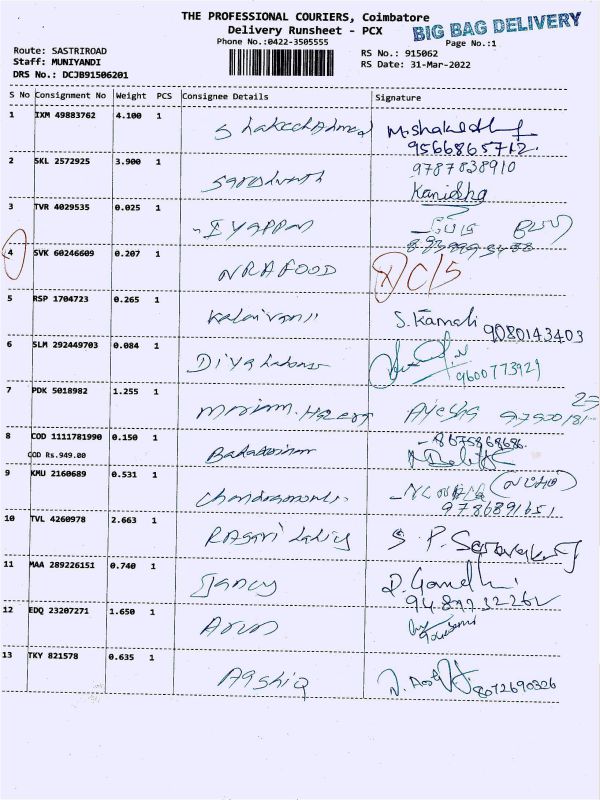 THE PROFESSIONAL COURIERS, Coimbatore
BIG BAG DELIVERY
Delivery Runsheet - PCX
Phone No.:0422-3505555
Page No.:1
Route: SASTRIROAD
Staff: MUNIYANDI
DRS No.: DCJB91506201
RS No.: 915062
RS Date: 31-Mar-2022
S No Consignment No Weight PCS Consignee Details Signature
1 IXM 49883762 4.100 1 Shakeel Ahmed
9566865712.
2 SKL 2572925 3.900 1 9787838910
Kanisha
3 TVR 4029535 0.025 1 - IYAPPAN
4 SVK 60246609 0.207 1 NRA FOOD C/5
5 RSP 1704723 0.265 1 Kalaivani S. Kamali 9080143403
6 SLM 292449703 0.084 1
9600773921
7 PDK 5018982 1.255 1 Ayesha
8 COD 1111781990 0.150 1
COD Rs.949.00
9 KMU 2160689 0.531 1
9786891651
10 TVL 4260978 2.663 1 S. P.
11 MAA 289226151 0.740 1 Jancy R. Gandhi
12 EDQ 23207271 1.650 1 Arun
13 TKY 821578 0.635 1 Aashiq 8072690326